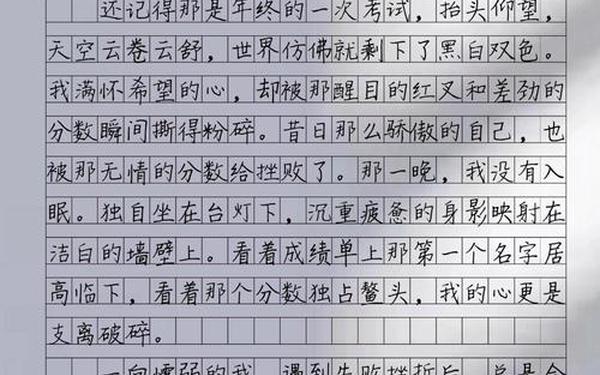 还记得那是年终的一次考试，抬头仰望，
天空云卷云舒，世界仿佛就剩下了黑白双色。
我满怀希望的心，却被那醒目的红叉和差劲的
分数瞬间撕得粉碎。昔日那么骄傲的自己，也
被那无情的分数给挫败了。那一晚，我没有入
眠。独自坐在台灯下，沉重疲惫的身影映射在
洁白的墙壁上。看着成绩单上那第一个名字居
高临下，看着那个分数独占鳌头，我的心更是
支离破碎。
一向懦弱的我，遇到失败挫折后，总是会